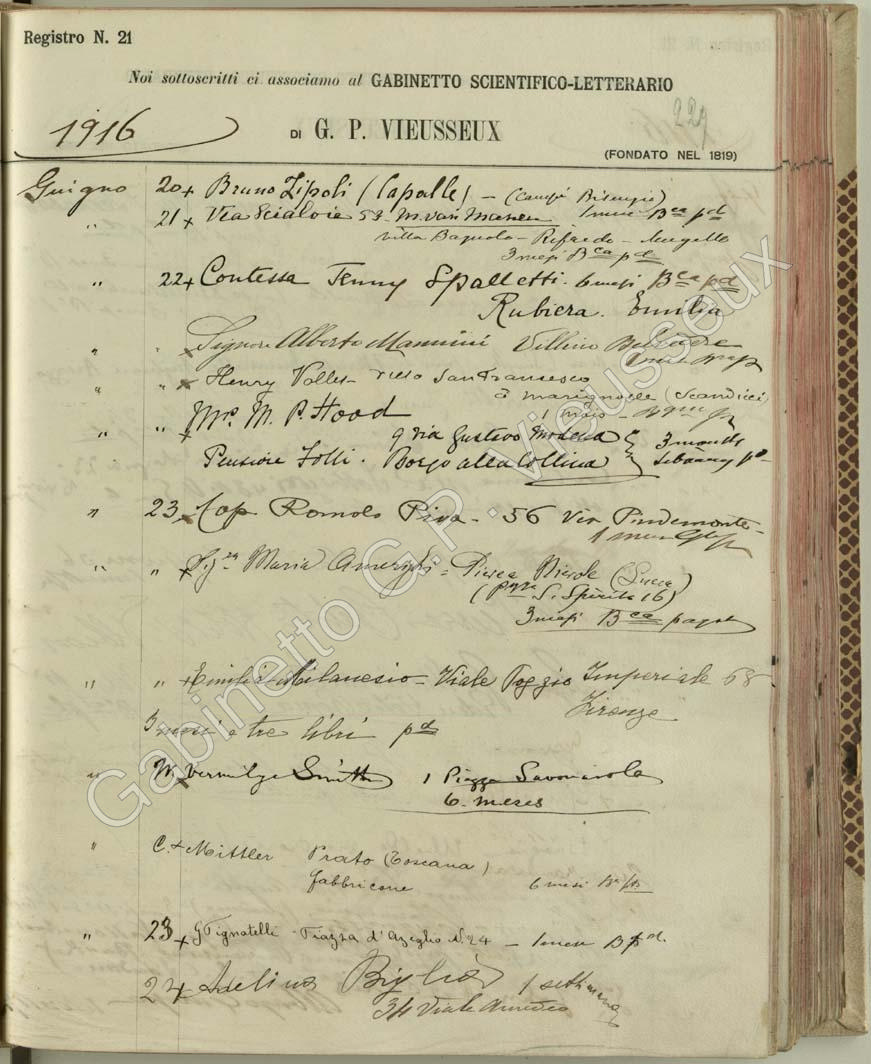 Registro N. 21
Noi sottoscritti ci associamo al GABINETTO SCIENTIFICO-LETTERARIO
229
1916
DI G. P. VIEUSSEUX
(FONDATO NEL 1819)
Guigno 20 + Bruno Zipoli (Capalle) - (Campi Bisenzio)
" 21 + Via Scialoia 53 - M. van Manen 1 mese Bca pd
Villa Bagnolo - Rifredo - Mugello
3 mesi Bca pd
" 22 + Contessa Jenny Spalletti. 6 mesi Bca pd
Rubiera. Emilia
" " Signore Alberto Mannini Villino
" " Henry San Francesco
a Marignolle (Scandicci)
" " + Mrs. M. P. Hood 1 mese
9 via Gustavo Modena 3 months
Pensione Borgo alla Collina
" 23 Cap Romolo Piva - 56 Via Pindemonte -
1 mese
" " Sig.ra Maria - Pieve (Lucca)
(pzza S. Spirito 16)
3 mesi Bca pagati
" " + Emilia Milanesio - Viale Poggio Imperiale 68
Firenze
3 mesi e tre libri pd
" W. Vermilye Smith 1 Piazza Savonarola
6 meses
" C. + Mittler Prato (Toscana)
fabbricone 6 mesi
" 23 + G Pignatelli - Piazza d'Azeglio N. 24 - 1 mese B pd.
24 + 1 settimana
34 Viale Amedeo
Gabinetto G.P. Vieusseux